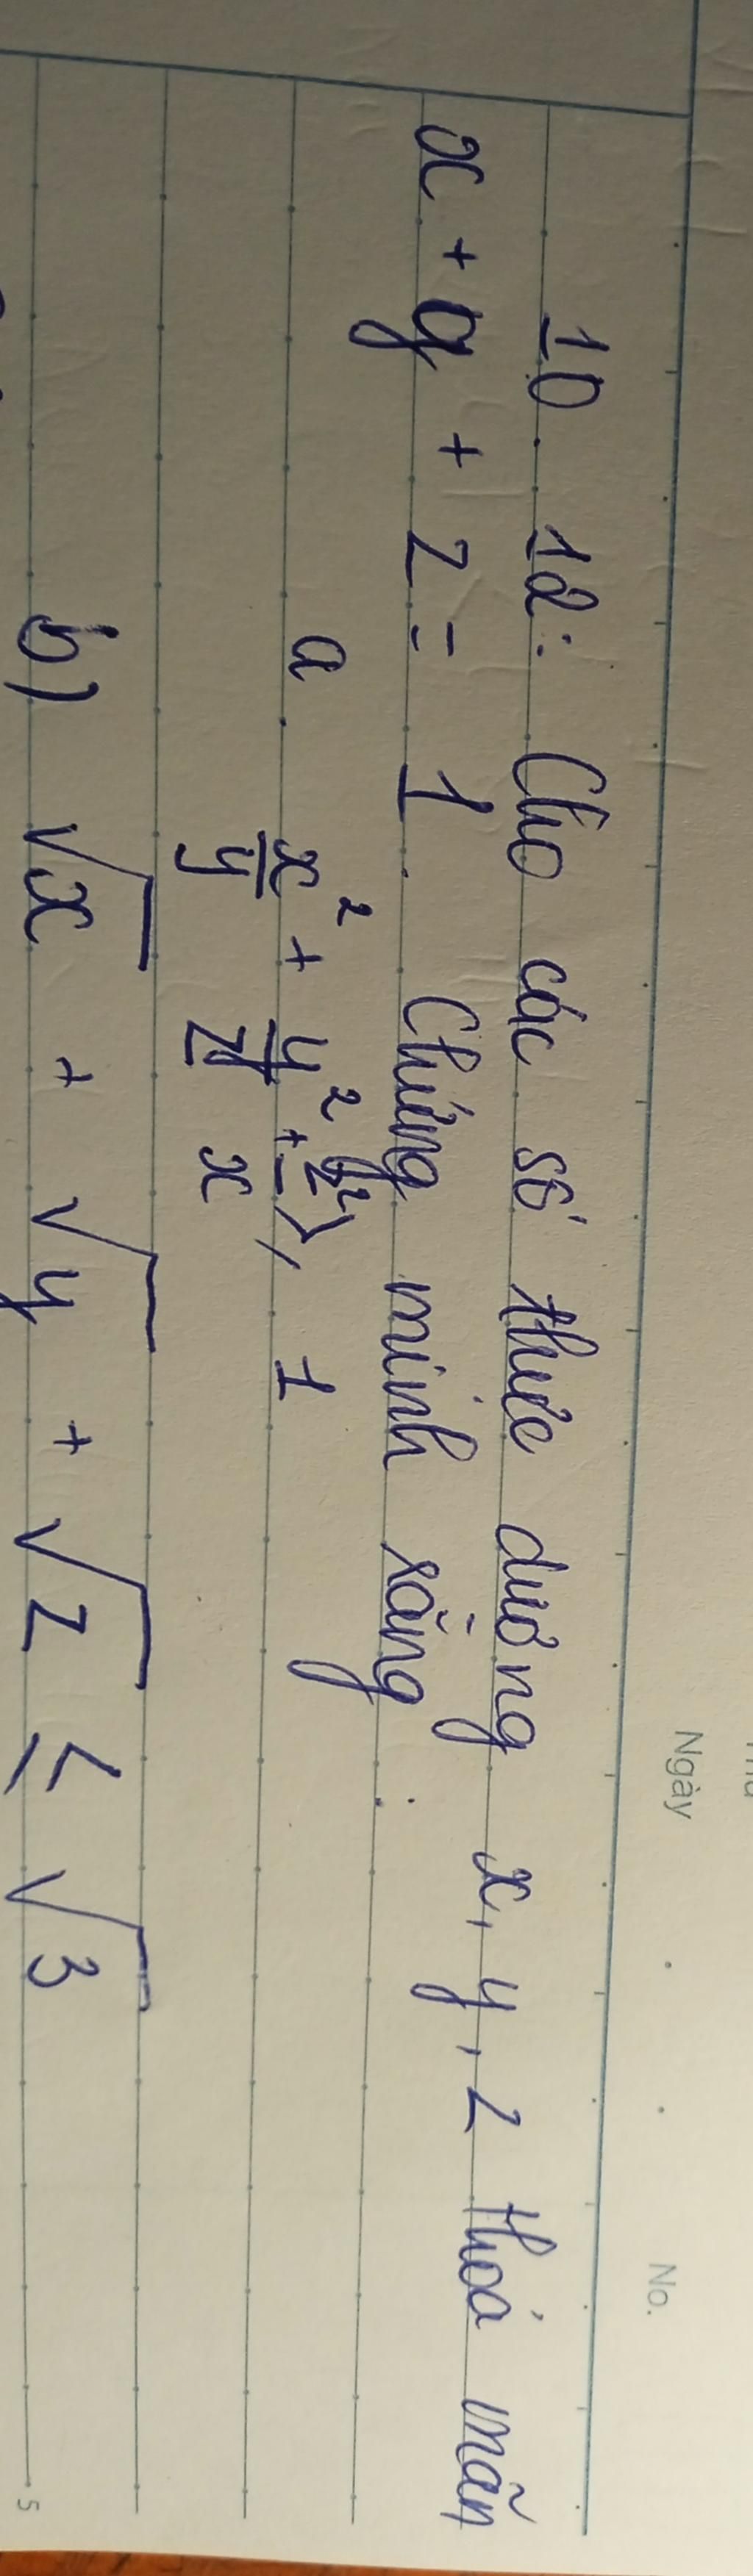 Ngày
No.
10.12: Cho các số thực dương x, y, z thoả mãn
x + y + z = 1. Chứng minh rằng:
a. x²/y + y²/z + z²/x ≥ 1
b) √x + √y + √z ≤ √3
5